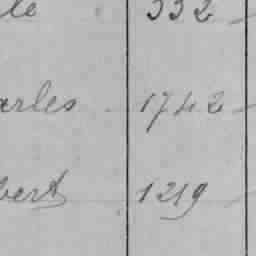 le 332
arles 1742
bert 1219